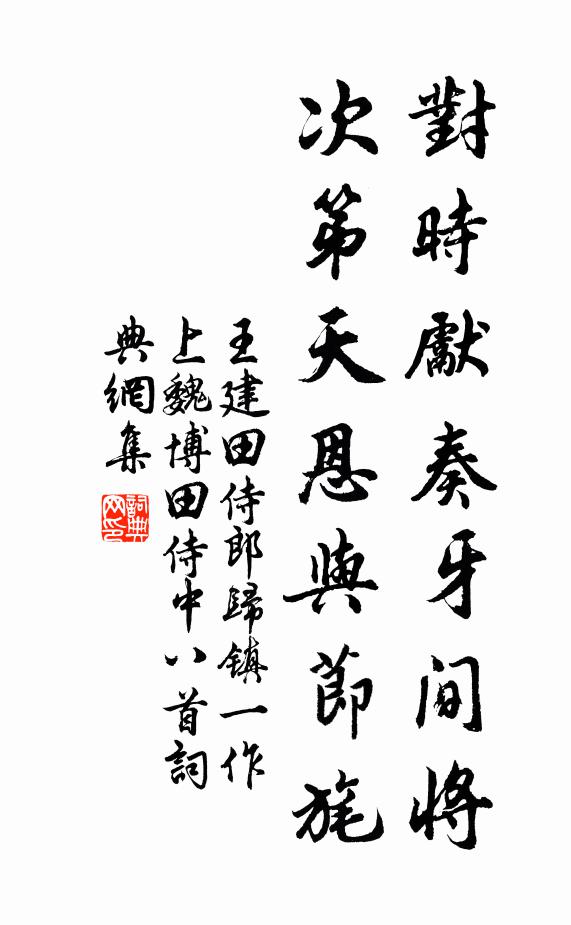 對時獻奏牙間將
次第天恩與節旄
王建田侍郎歸鎮一作
上魏博田侍中八首詞
典網集
詞典网印